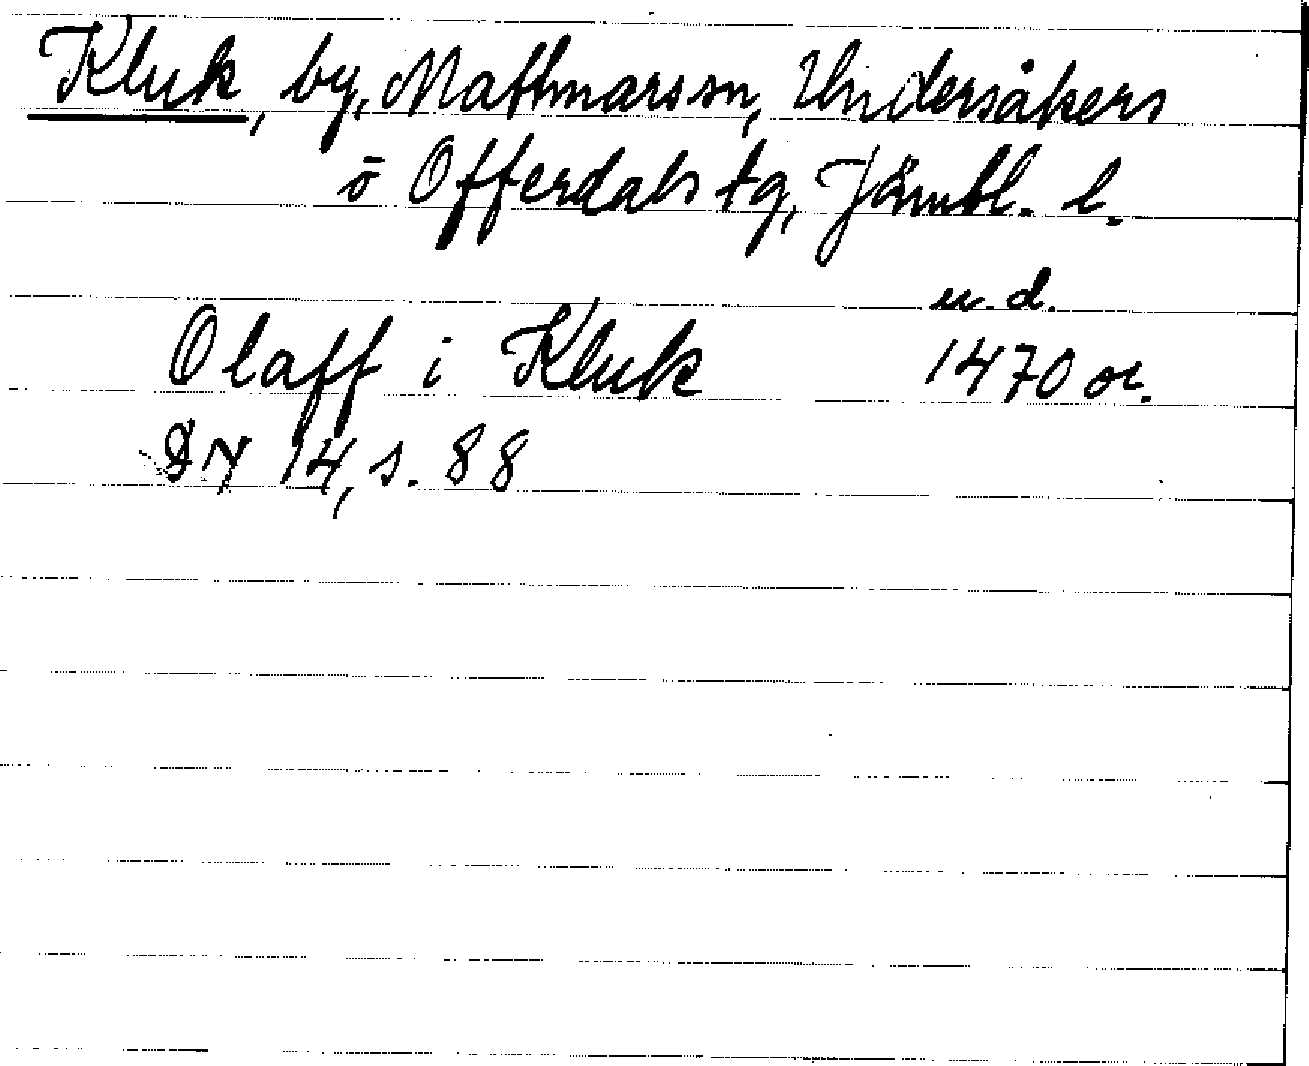 Kluk, by, Mattmars sn, Undersåkers
o Offerdals tg, Jämtl. l.
u. d.
Olaff i Kluk 1470 or.
DN 14, s. 88